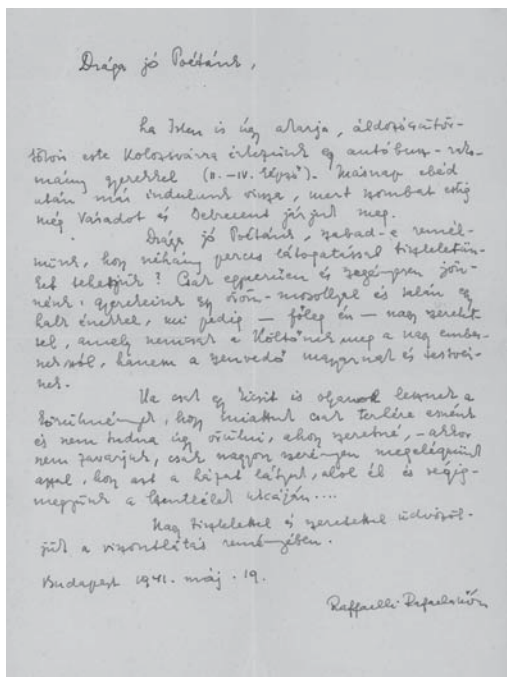 Drága jó Poétánk,
Ha Isten is úgy akarja, áldozócsütör-
tökön este Kolozsvárra érkezünk egy autóbusz-rako-
mány gyerekkel (II.-IV. képző). Másnap ebéd
után már indulunk vissza, mert szombat estig
még Váradot és Debrecent járjuk meg.
Drága jó Poétánk, szabad-e remél-
nünk, hogy néhány perces látogatással tiszteletün-
ket tehetjük? Csak egyszerűen és szegényesen jön-
nénk: gyerekeink egy öröm-mosollyal és talán egy
halk énekkel, mi pedig — főleg én — nagy szeretet-
tel, amely nemcsak a Költőnek meg a nagy ember-
nek szól, hanem a szenvedő magyarnak és testvér-
nek.
Ha csak egy kicsit is olyanok lesznek a
körülmények, hogy miattunk csak terhére esnénk
és nem tudna úgy örülni, ahogy szeretné, - akkor
nem zavarjuk, csak nagyon szerényen megelégszünk
azzal, hogy azt a házat látjuk, ahol él és végig-
megyünk a Szentlélek utcáján....
Nagy tisztelettel és szeretettel üdvözöl-
jük a viszontlátás reményében.
Budapest 1941. máj. 19.
Raffaelli Rafaela nővér